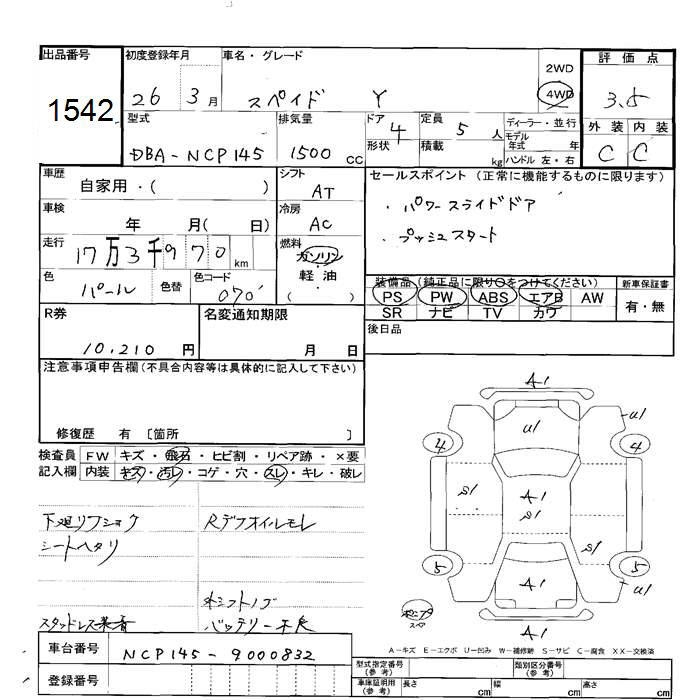 出品番号
1542
初度登録年月
26 3月
車名・グレード
スペイド Y
2WD
4WD
評価点
3.5
型式
DBA-NCP145
排気量
1500 CC
ドア 4
形状
定員 5 人
積載 kg
ディーラー・並行
モデル
年式 年
ハンドル 左・右
外装 内装
C C
車歴
自家用・( )
シフト
AT
セールスポイント (正常に機能するものに限ります)
・パワースライドドア
・プッシュスタート
車検
年 月( 日)
冷房
AC
走行
17万3千970 km
燃料
ガソリン
軽・油
( )
色
パール
色替
色コード
070
装備品 (純正品に限り○をつけてください)
PS PW ABS エアB AW
SR ナビ TV カワ
新車保証書
有・無
R券
10,210 円
名変通知期限
月 日
後日品
注意事項申告欄(不具合内容等は具体的に記入して下さい)
修復歴 有 〔箇所 〕
検査員 FW キズ・飛石・ヒビ割・リペア跡・×要
記入欄 内装 キズ・汚レ・コゲ・穴・スレ・キレ・破レ
下廻リフショク
Rデフオイルモレ
シートヘタリ
スタッドレス装着
バッテリー不良
A1
U1
U1
4
4
S1
A1
S1
S1
S1
5
5
A1
U1
A1
スペア
A-キズ E-エクボ U-凹み W-補修跡 S-サビ C-腐食 XX-交換済
車台番号
NCP145-9000832
登録番号
型式指定番号
(参考)
類別区分番号
(参考)
車庫証明用
(参考)
長さ cm
幅 cm
高さ cm